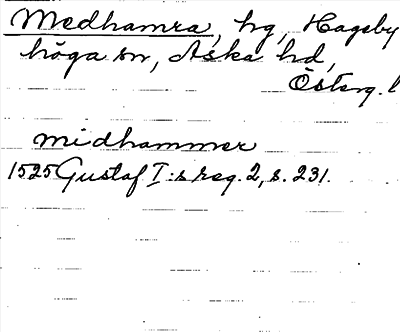 Medhamra, hg, Hagsby
höga sn, Aska hd,
Österg. l
midhammer
1525 Gustaf I:s reg. 2, s. 231.